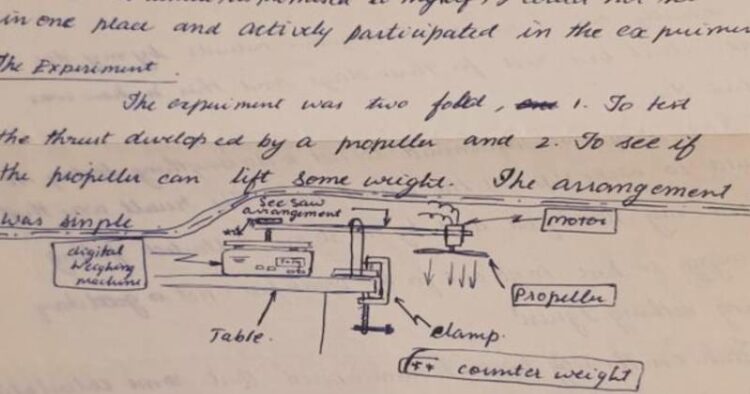 in one place and actively participated in the experimen
The Experiment
The experiment was two fold, 1. To test
the thrust developed by a propeller and 2. To see if
the propeller can lift some weight. The arrangement
was simple
See saw
arrangement
motor
digital
weighing
machine
Propeller
Table.
clamp.
** counter weight